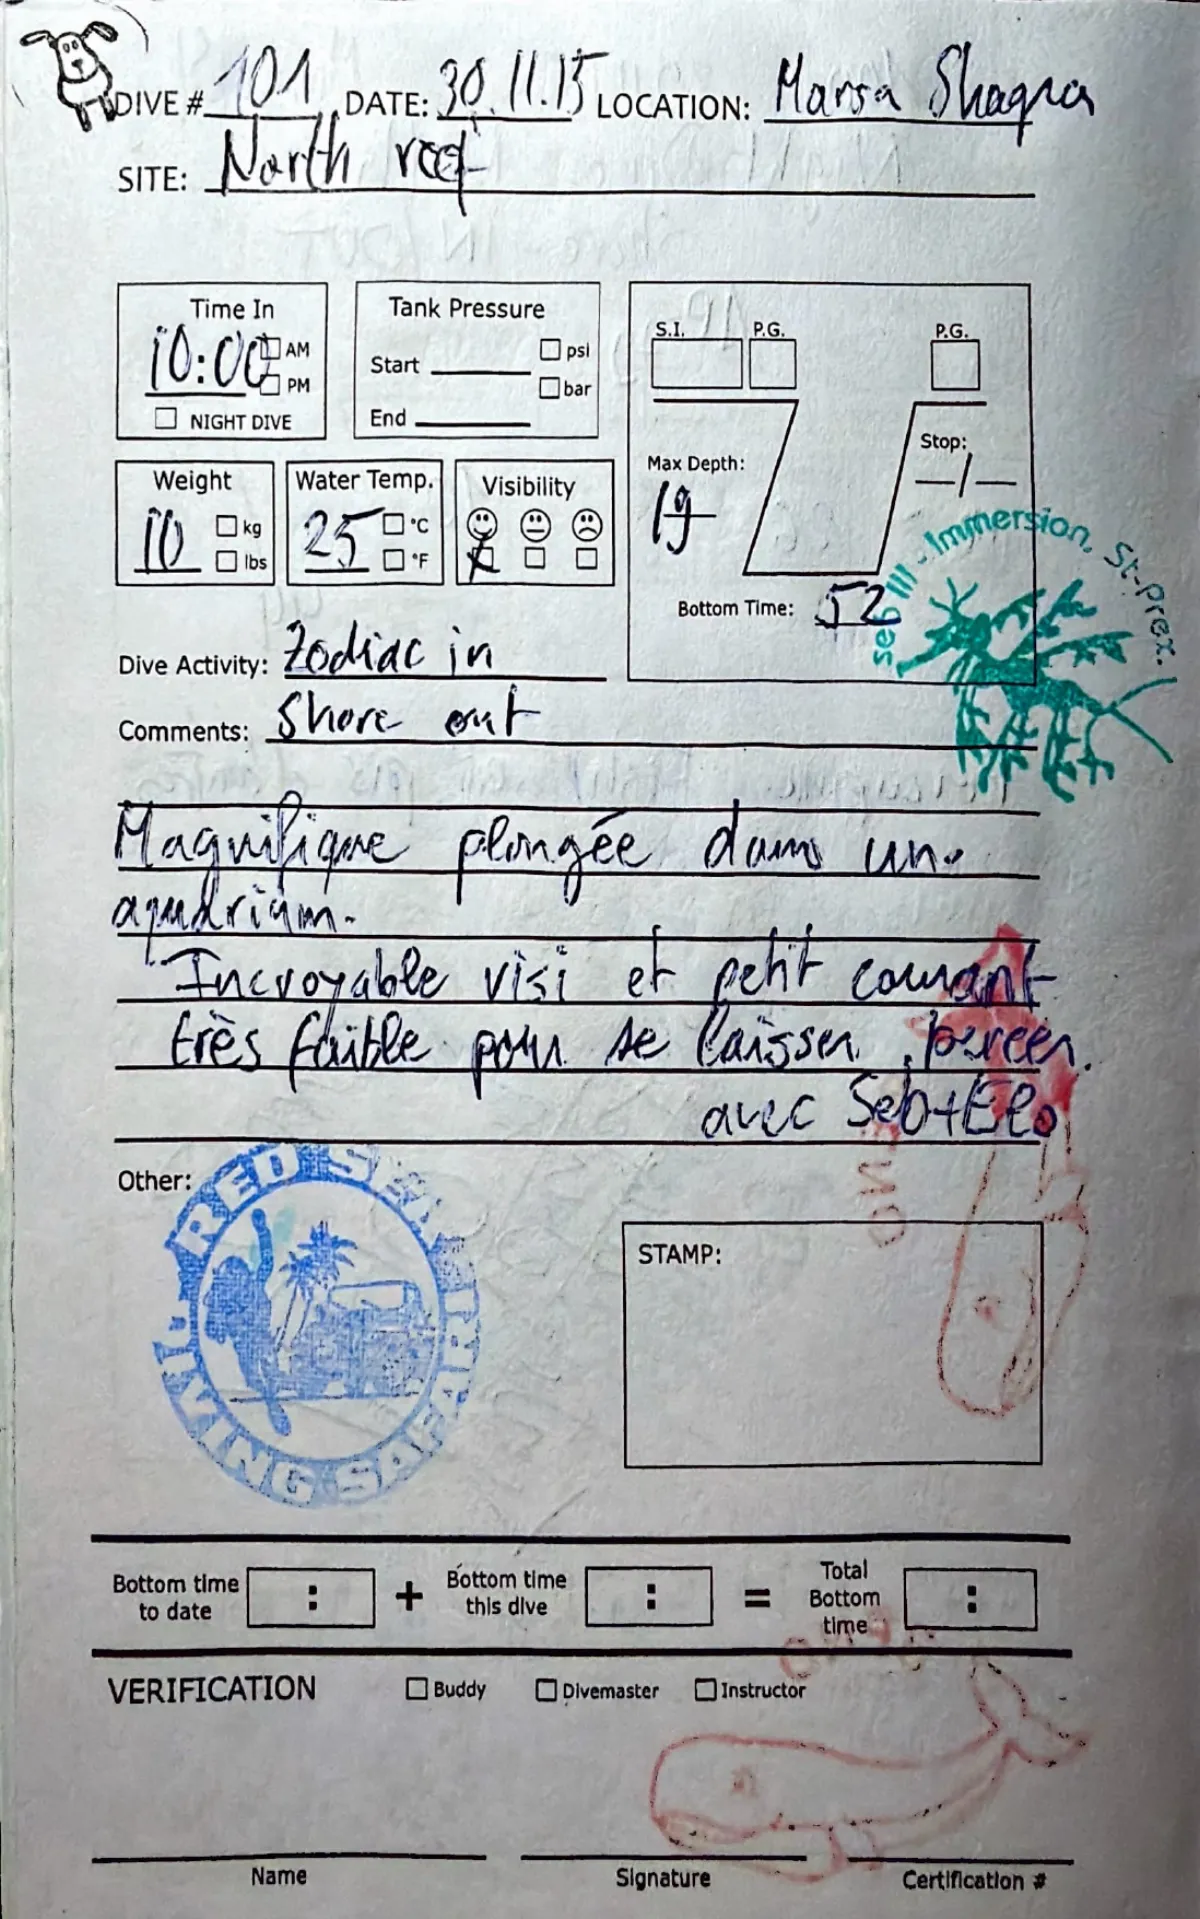 DIVE # 101 DATE: 30.11.15 LOCATION: Marsa Shagra
SITE: North reef
Time In
10:00 AM
PM
NIGHT DIVE
Tank Pressure
Start psi
bar
End
S.I. P.G. P.G.
Max Depth: Stop:
19 -/-
Bottom Time: 52
Weight
10 kg
lbs
Water Temp.
25 °C
°F
Visibility
seb III - Immersion. St-Prex.
Dive Activity: Zodiac in
Comments: Shore out
Magnifique plongée dans un
aquarium.
Incroyable visi et petit courant
très faible pour se laisser bercer.
avec Seb+Elo
Other:
RED SEA DIVING SAFARI
STAMP:
Bottom time to date : + Bottom time this dive : = Total Bottom time :
VERIFICATION Buddy Divemaster Instructor
Name Signature Certification #